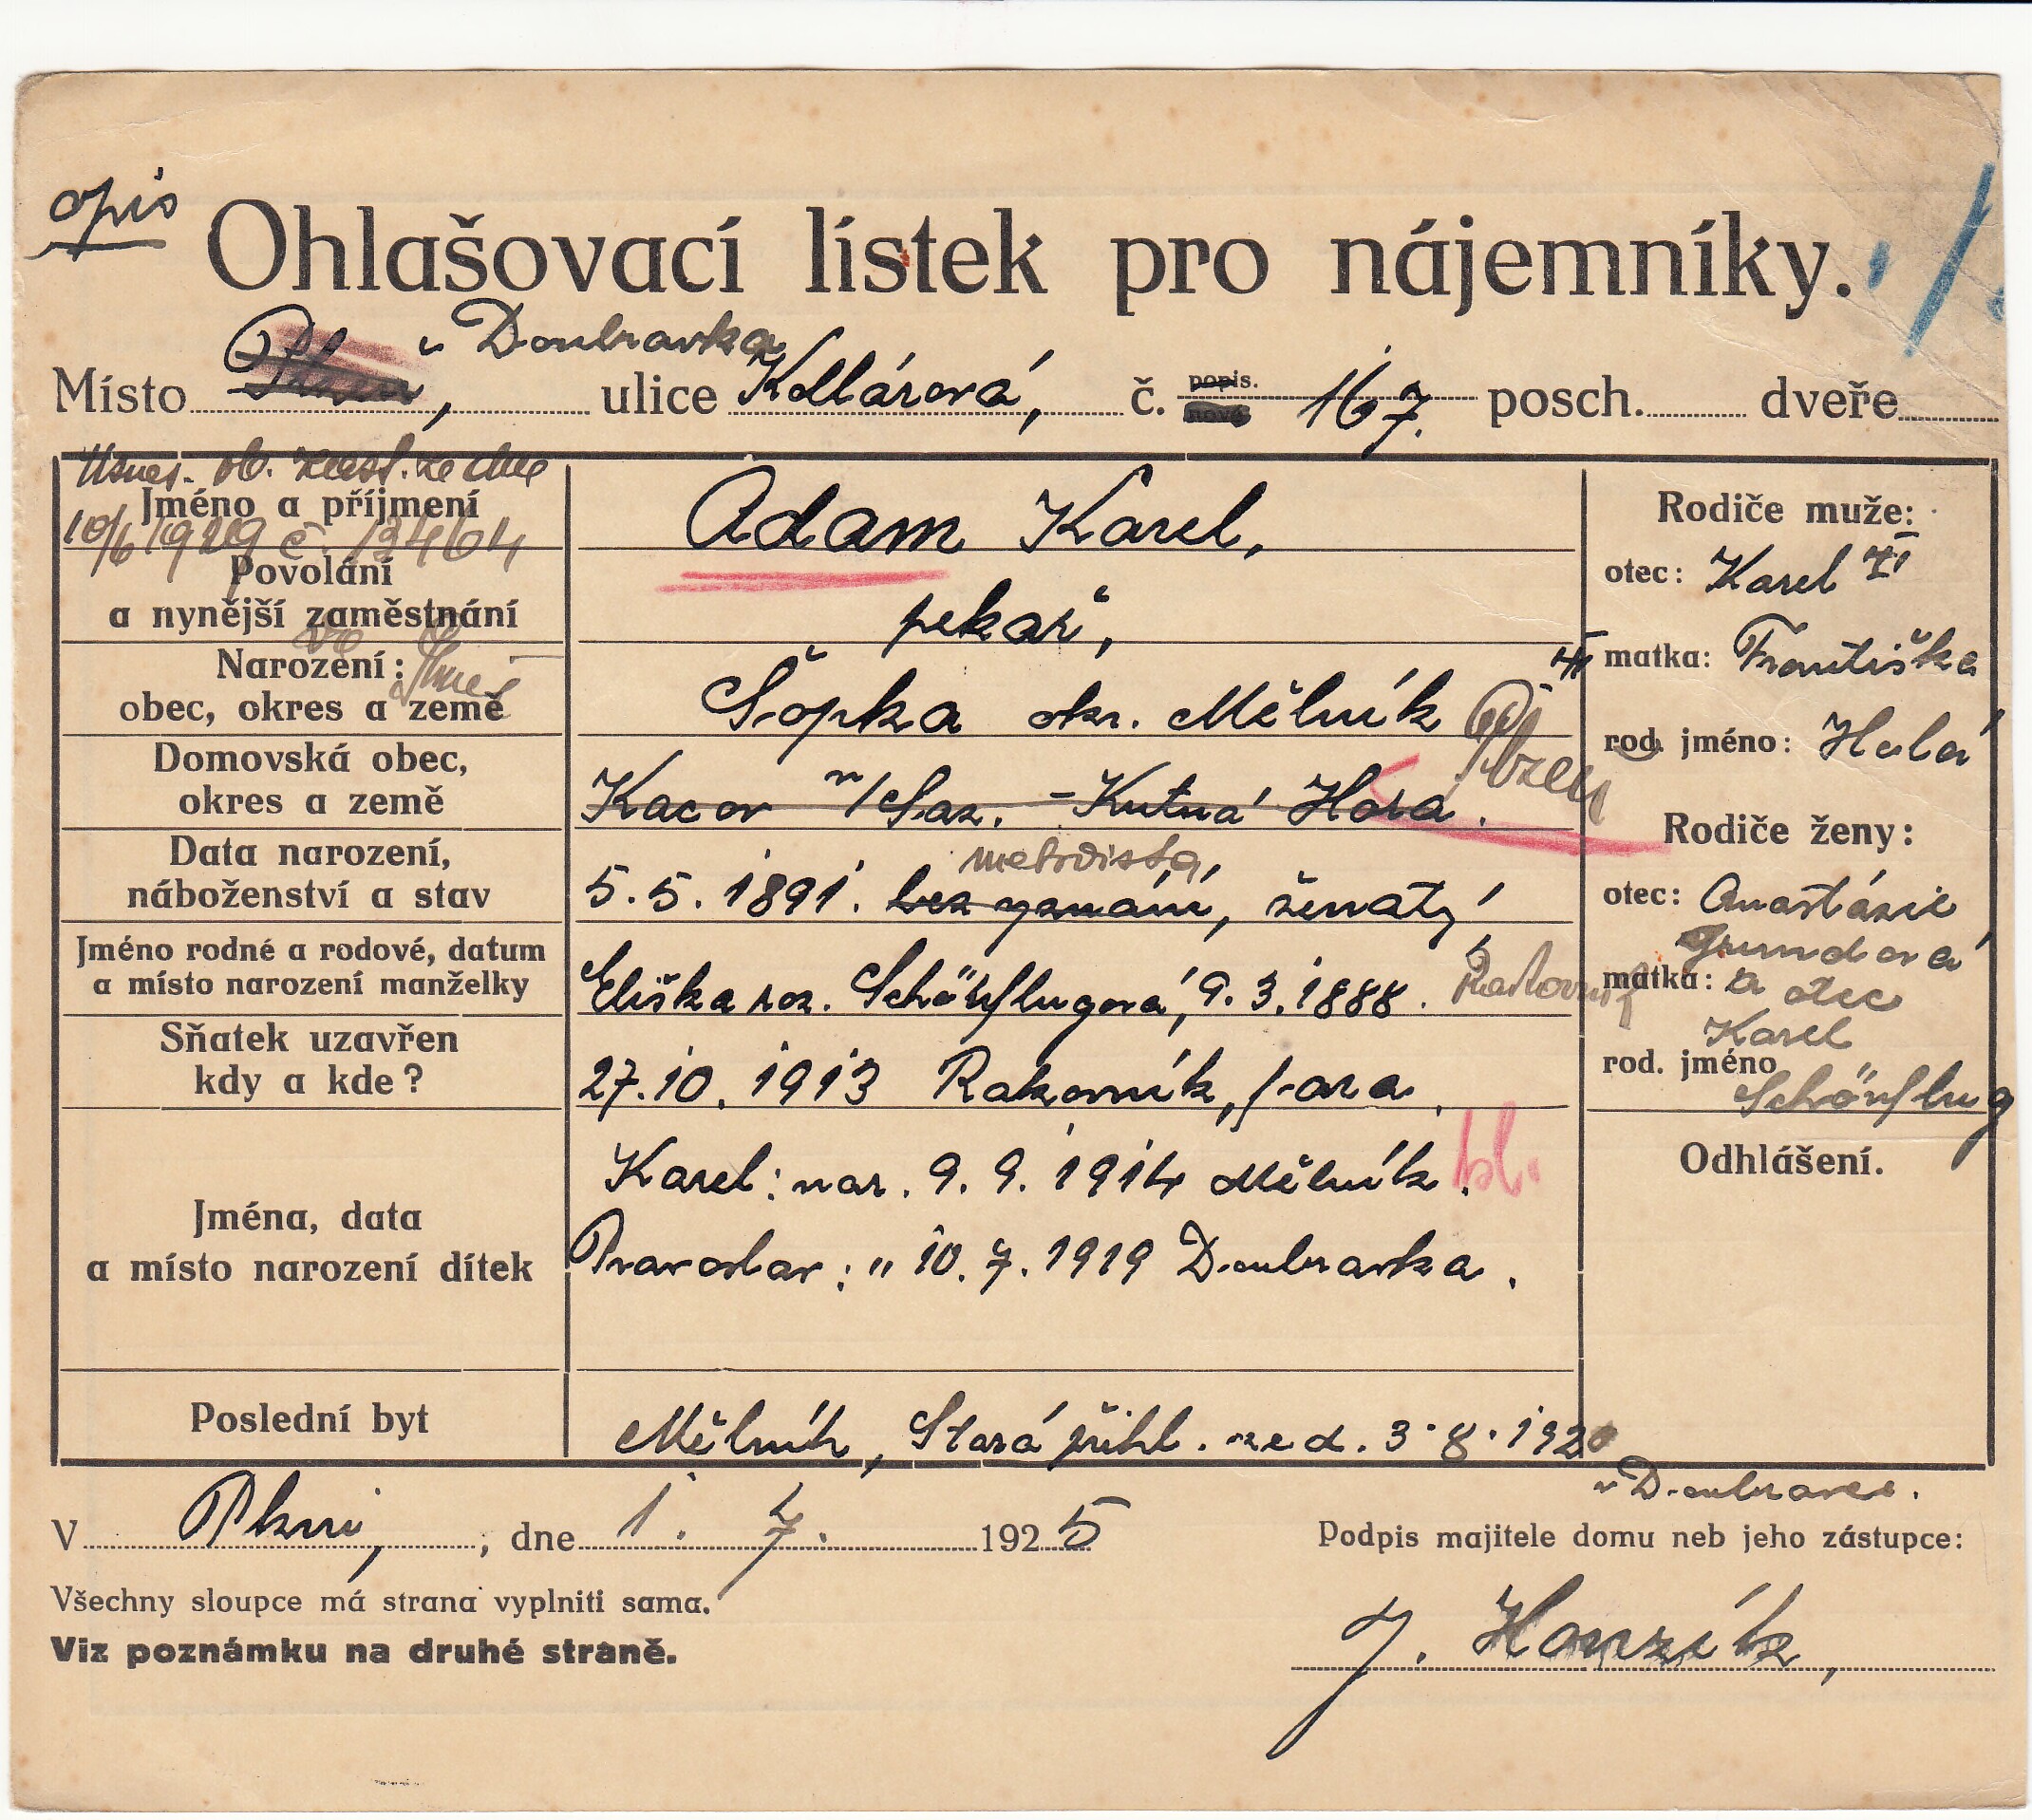 opis
Ohlašovací lístek pro nájemníky.
v Doubravka
Místo Plzeň, ulice Kollárová, č. popis. nové 167. posch. dveře
Usnes. ob. zast. ze dne
Jméno a příjmení Adam Karel,
10/6 1929 č. 13464
Povolání
a nynější zaměstnání pekař,
Narození:
obec, okres a země Šopka okr. Mělník
Domovská obec,
okres a země Kacov n/Saz. - Kutná Hora. Plzeň
Data narození,
náboženství a stav 5.5.1891. bez vyznání, ženatý
metodista
Jméno rodné a rodové, datum
a místo narození manželky Eliška roz. Schönflugová, 9.3.1888. Rakovník
Sňatek uzavřen
kdy a kde? 27.10.1913 Rakovník, fara.
Jména, data
a místo narození dítek
Karel: nar. 9.9.1914 Mělník.
Pravoslav: " 10.7.1919 Doubravka.
Poslední byt Mělník, Stará přihl. ze d. 3.8.1920
v Doubravce.
Rodiče muže:
otec: Karel
matka: Františka
rod. jméno: Halá
Rodiče ženy:
otec: Anastázie
Grundová
matka: a otec
Karel
rod. jméno
Schönflug
Odhlášení.
V Plzni, dne 1. 7. 1925
Podpis majitele domu neb jeho zástupce:
Všechny sloupce má strana vyplniti sama.
Viz poznámku na druhé straně.
J. Honzík,